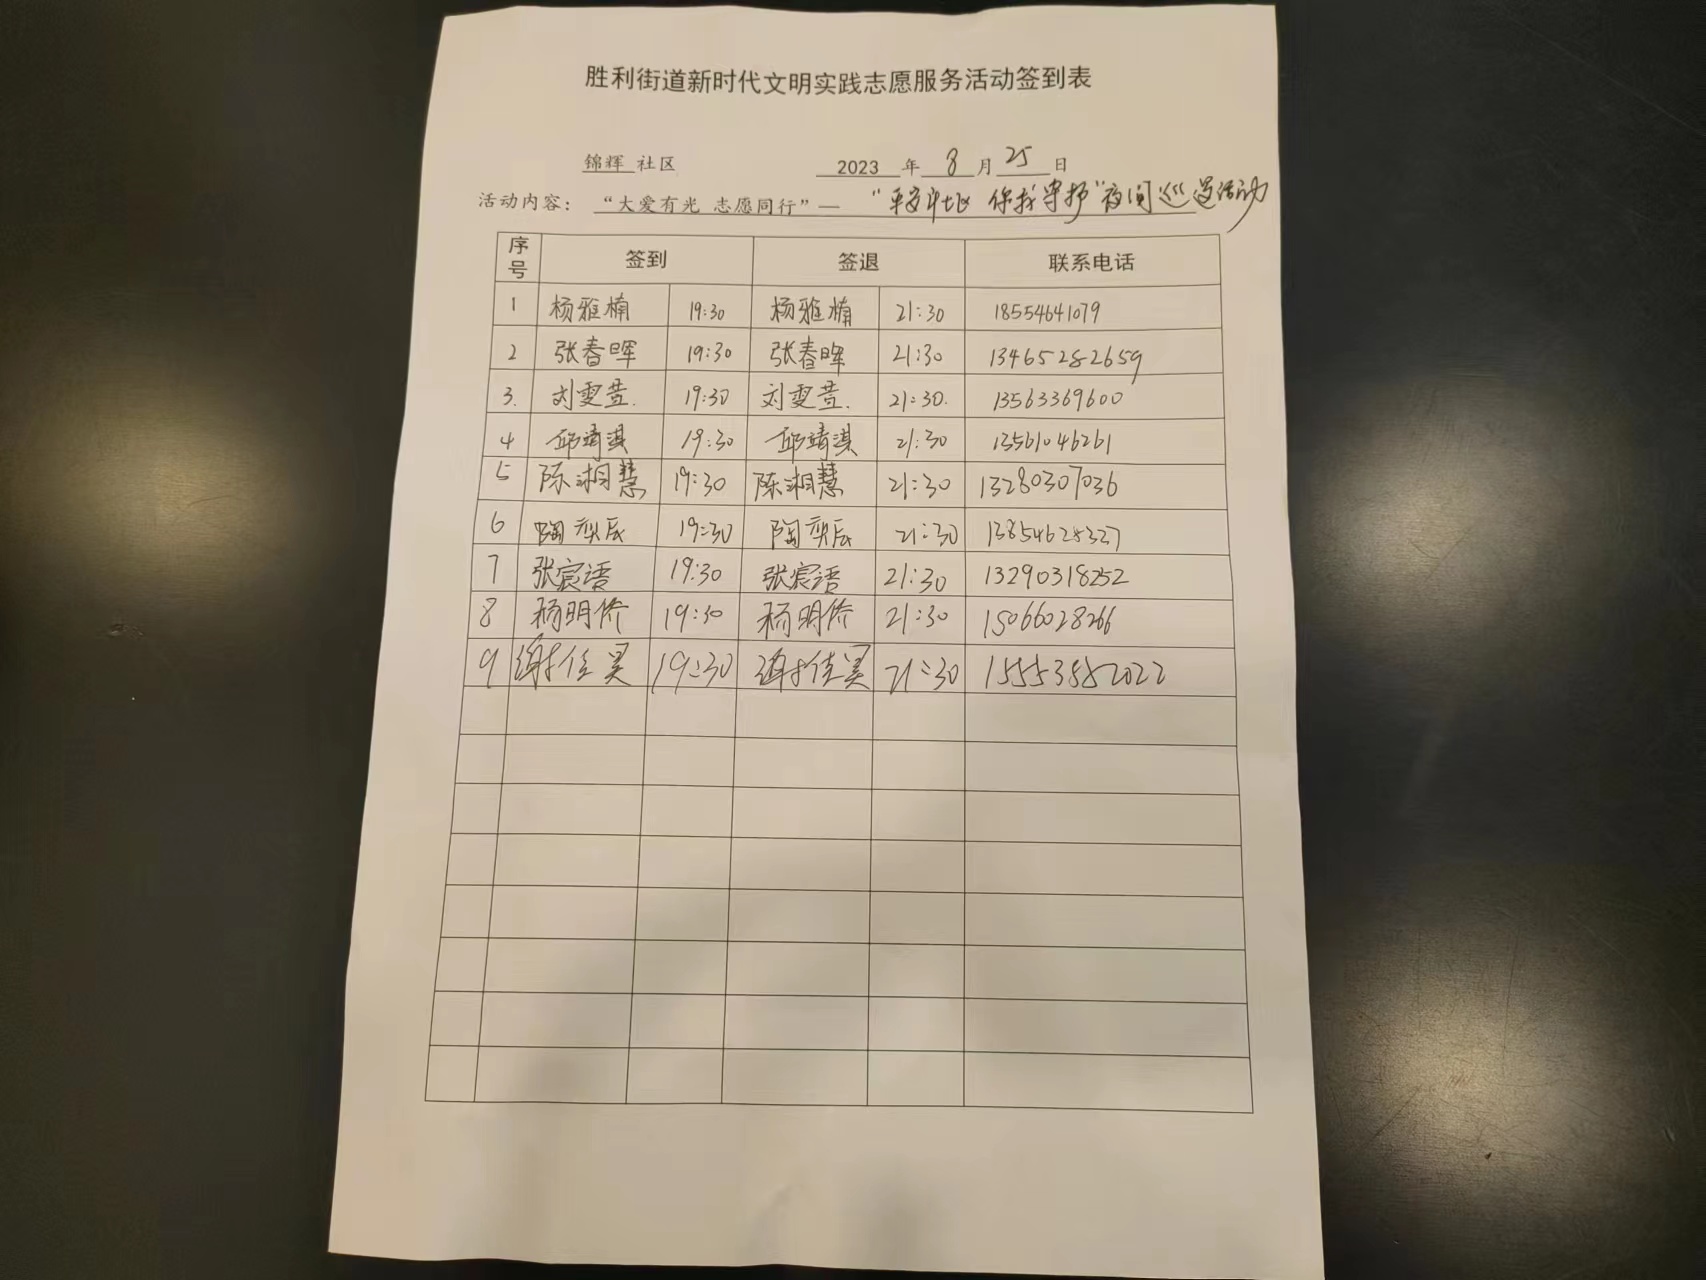 胜利街道新时代文明实践志愿服务活动签到表
锦辉 社区 2023 年 8 月 25 日
活动内容： “大爱有光 志愿同行”— “平安社区 你我守护”夜间巡逻活动
序号 签到 签退 联系电话
1 杨雅楠 19:30 杨雅楠 21:30 18554641079
2 张春晖 19:30 张春晖 21:30 13465282659
3. 刘雯萱. 19:30 刘雯萱. 21:30. 13563369600
4 邱靖淇 19:30 邱靖淇 21:30 13561046261
5 陈湘慧 19:30 陈湘慧 21:30 13280307036
6 陶奕辰 19:30 陶奕辰 21:30 13854628327
7 张宸语 19:30 张宸语 21:30 13290318252
8 杨明侨 19:30 杨明侨 21:30 15066028266
9 谢佳昊 19:30 谢佳昊 21:30 15553852022